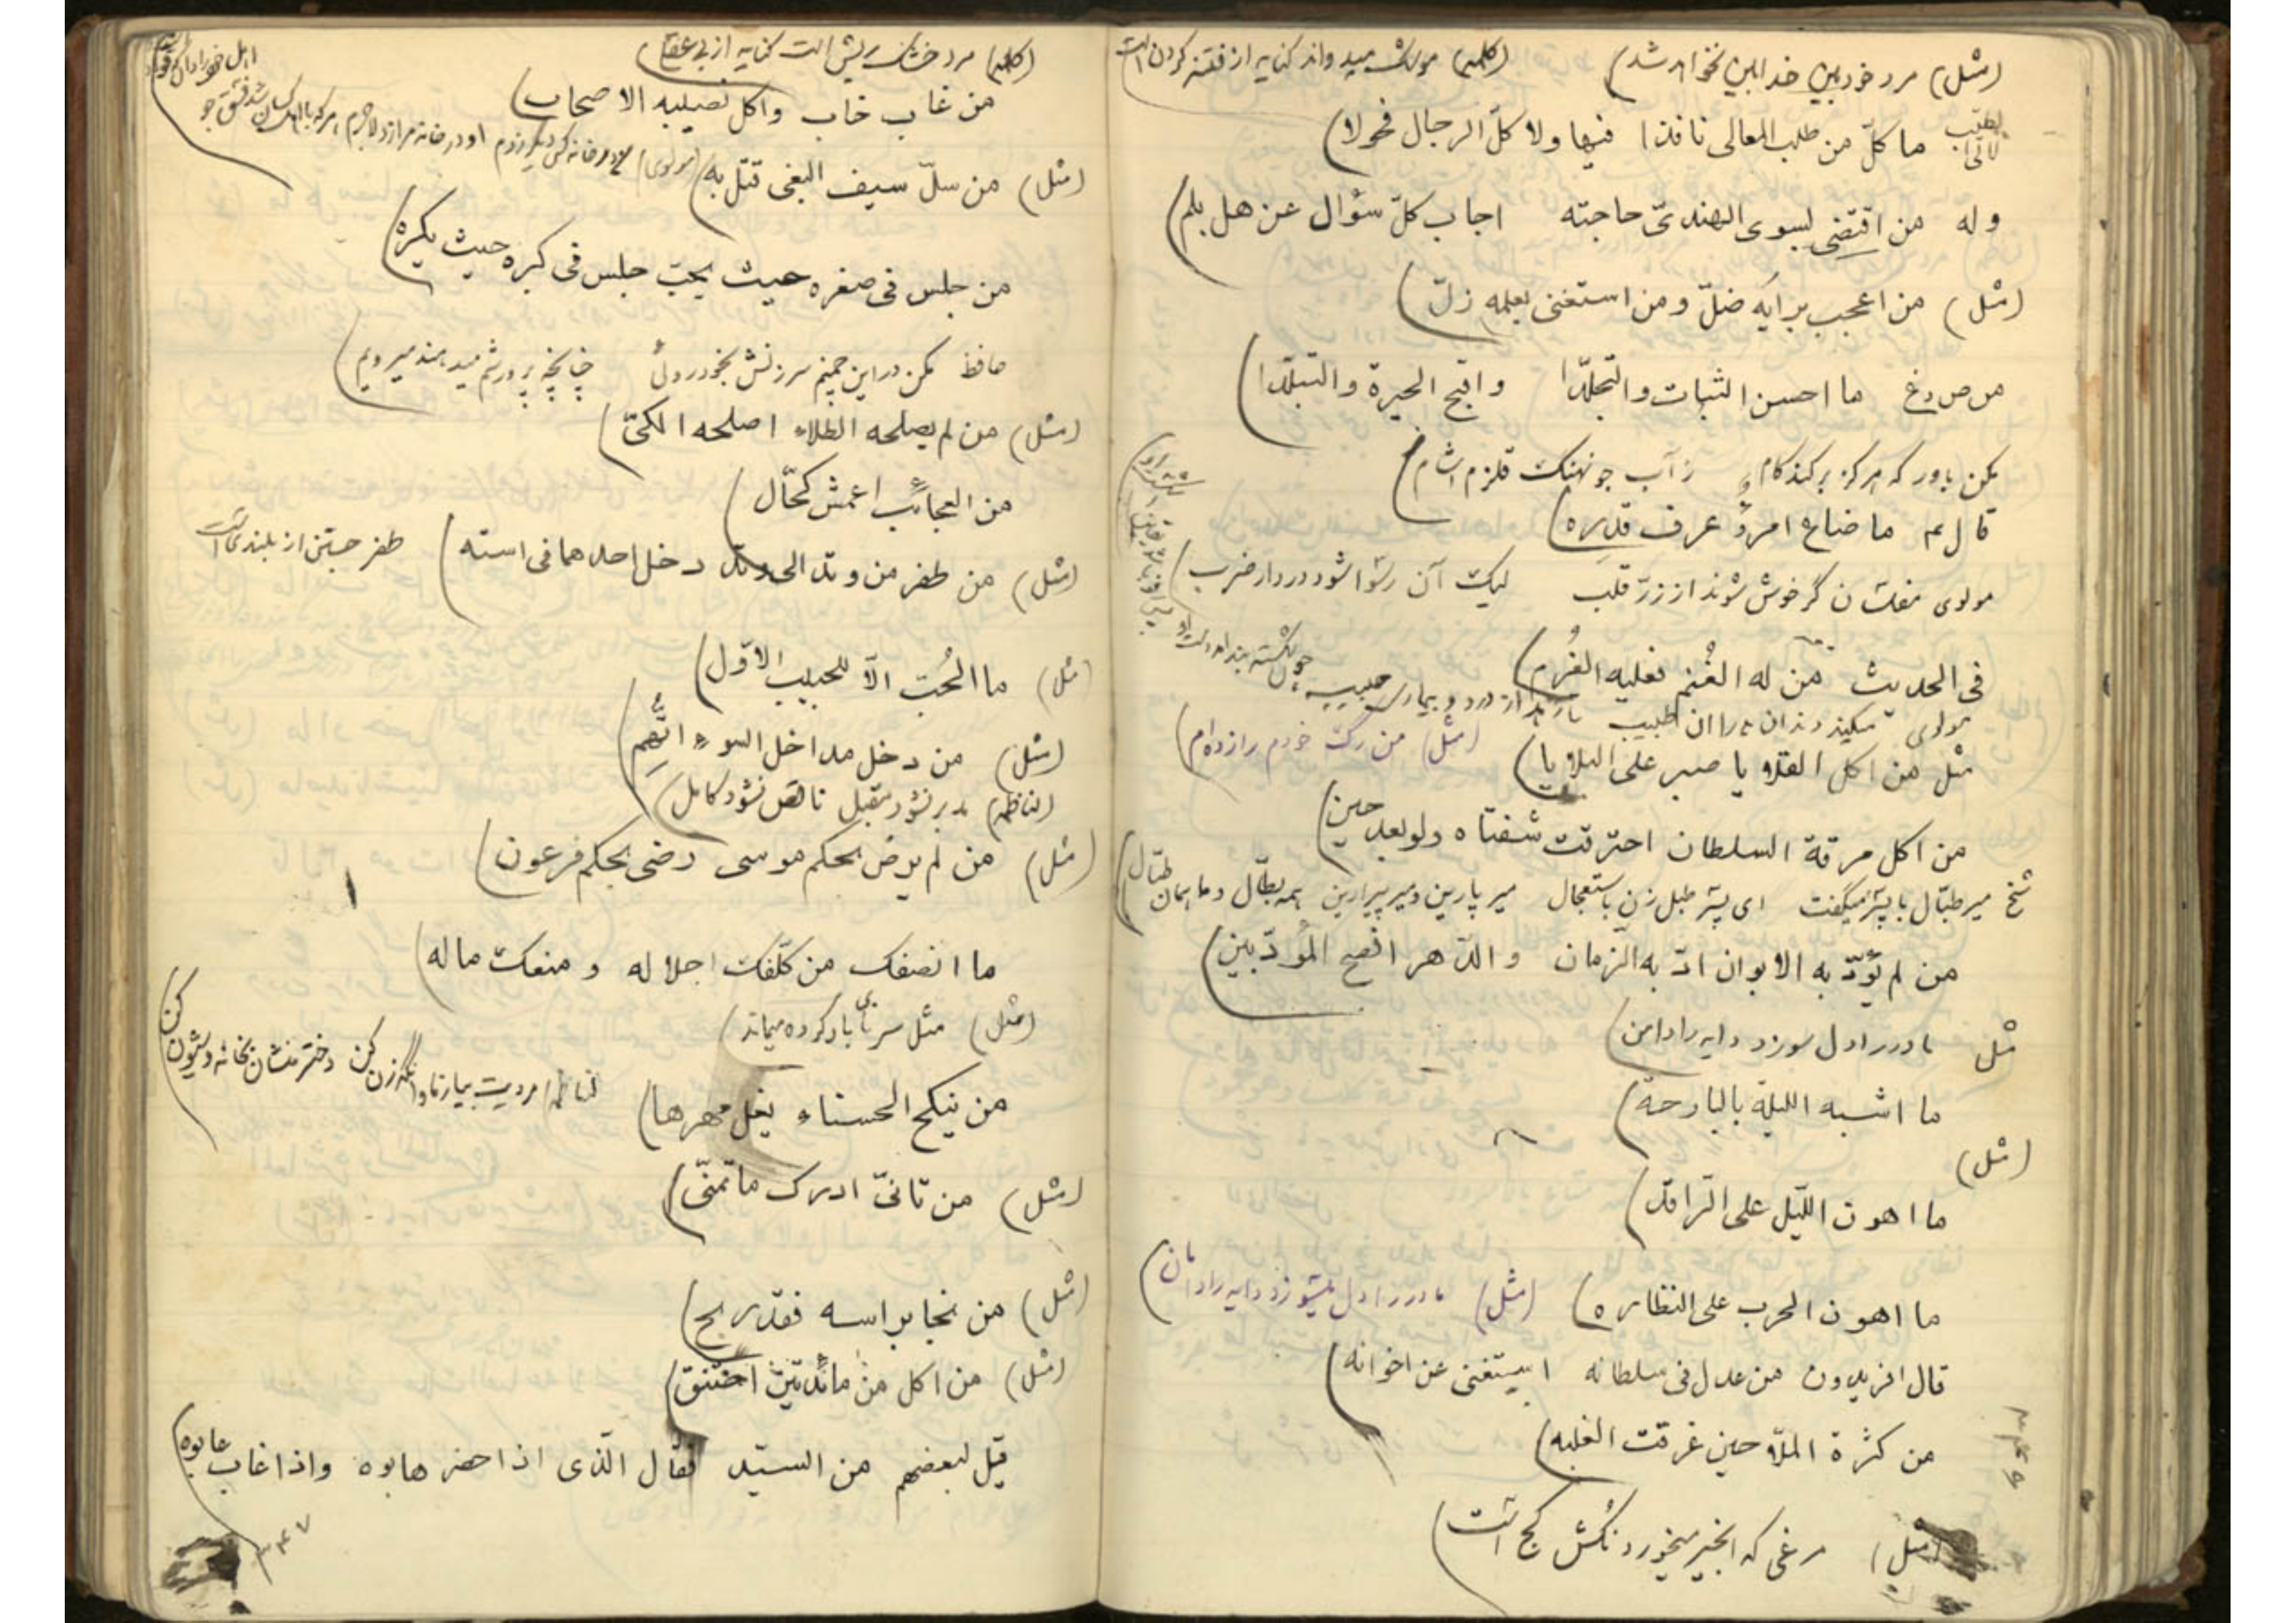 (مثل) مرد خودبین خدابین نخواهد شد (کلمه) موشک میدواند کنایه از فتنه کردن است
لابی الطیب ما کلّ من طلب المعالی نافذا فیها ولا کلّ الرجال فحولا
وله من اقتضی بسوی الهندیّ حاجته اجاب کلّ سؤال عن هل بلم
(مثل) من اعجب برایه ضلّ ومن استغنی بعلمه زلّ
ما احسن الثبات والتجلّدا واقبح الحیرة والتبلّدا
مکن باور که هرگز تر کند کام ز آب جو نهنگ قلزم آشام
قال ع ما ضاع امرؤ عرف قدره
مولوی مفلسان گر خوش شوند از زرّ قلب لیک آن رسوا شود در دار ضرب
فی الحدیث من له الغُنم فعلیه الغُرم
مولوی میکند دندان بد را آن طبیب تا رهد از درد و بیماری حبیب
مثل من اکل القلایا صبر علی البلایا (مثل) من رگ خودم را زده‌ام
من اکل مرقة السلطان احترقت شفتاه ولو بعد حین
میر طبّال با پسر میگفت ای پسر طبل زن باستعجال میر پارین و میر پیرارین همه بطّال و ما همان طبّال
من لم یؤدّبه الابوان ادّبه الزمان والدّهر افصح المؤدّبین
مثل مادر را دل سوزد دایه را دامن
ما اشبه اللیلة بالبارحة
(مثل)
ما اهون اللّیل علی الرّاقد
ما اهون الحرب علی النظاره (مثل) مادر را دل میسوزد دایه را دامان
قال افریدون من عدل فی سلطانه استغنی عن اخوانه
من کثرة الملّاحین غرقت
(مثل) مرغی که انجیر میخورد نکش کج است
(کلمه) مرد خشک ریش است کنایه از بی عقل
من غاب خاب واکل نصیبه الاصحاب
(مثل) من سلّ سیف البغی قتل به (مولوی)
من جلس فی صغره حیث یحبّ جلس فی کبره حیث یکره
حافظ مکن در این چمنم سرزنش بخودروئی چنانچه پرورشم میدهند میرویم
(مثل) من لم یصلحه الطلاء اصلحه الکیّ
من العجائب اعمش کحّال
(مثل) من طفر من وتد الی وتد دخل احدهما فی استه طفر جستن از بلندی است
مثل) ما الحُبّ الّا للحبیب الاوّل
(مثل) من دخل مداخل السوء اتُّهِم
(لناظمه) مدبر نشود مقبل ناقص نشود کامل
(مثل) من لم یرض بحکم موسی رضی بحکم فرعون
ما انصفک من کلّفک اجلاله و منعک ماله
(مثل) مثل سرنای باد کرده میماند
من ینکح الحسناء یغل مهرها
(مثل) من تانّی ادرک ما تمنّی
(مثل) من نجا براسه فقد ربح
(مثل) من اکل من مائدتین اختنق
قیل لبعضهم من السیّد فقال الّذی اذا حضر هابوه واذا غاب عابوه
۳۴۷